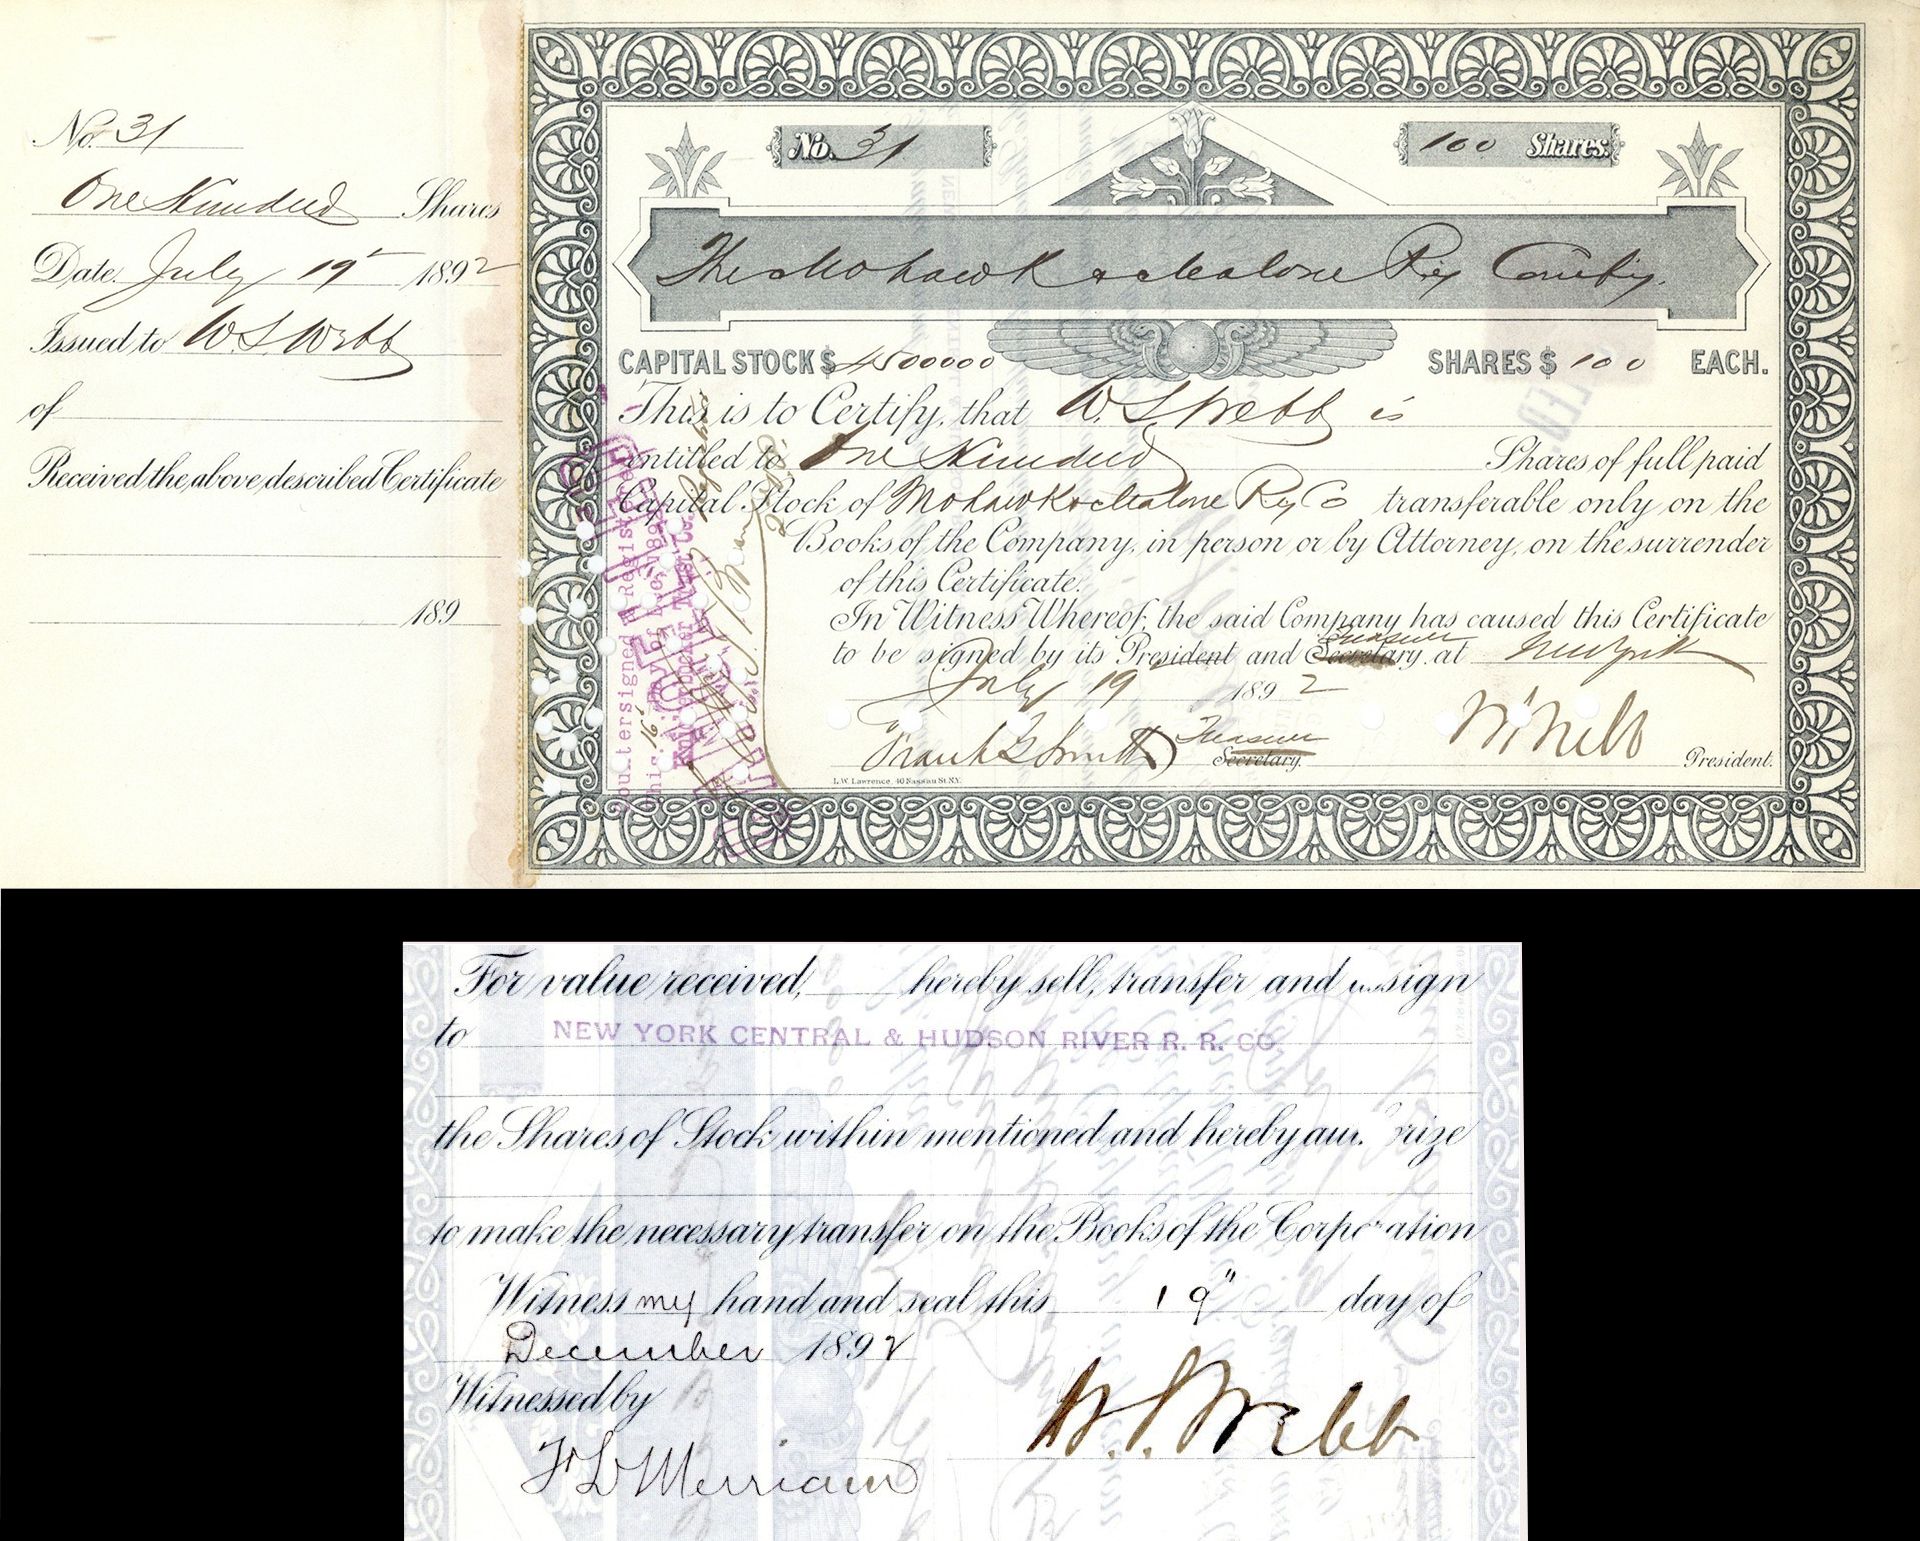 No. 31
One Hundred Shares
Date July 19 1892
Issued to W.S. Webb
of
Received the above described Certificate
189
No. 31
100 Shares.
The Mohawk & Malone Ry Company.
CAPITAL STOCK $ 4500000
SHARES $ 100 EACH.
This is to Certify, that W. S. Webb is
entitled to One Hundred Shares of full paid
Capital Stock of Mohawk & Malone Ry Co transferable only on the
Books of the Company, in person or by Attorney, on the surrender
of this Certificate.
In Witness Whereof, the said Company has caused this Certificate
to be signed by its President and Secretary, at New York
Treasurer
July 19 1892
Frank G Smith Treasurer
Secretary.
W S Webb
President.
L.W. Lawrence, 40 Nassau St. N.Y.
Countersigned & Registered
This 16 Day of
For value received, hereby sell, transfer and assign
to NEW YORK CENTRAL & HUDSON RIVER R. R. CO.
the Shares of Stock within mentioned and hereby au rize
to make the necessary transfer on the Books of the Corporation
Witness my hand and seal this 19" day of
December 1892
Witnessed by
W. S. Webb
F L Merriam